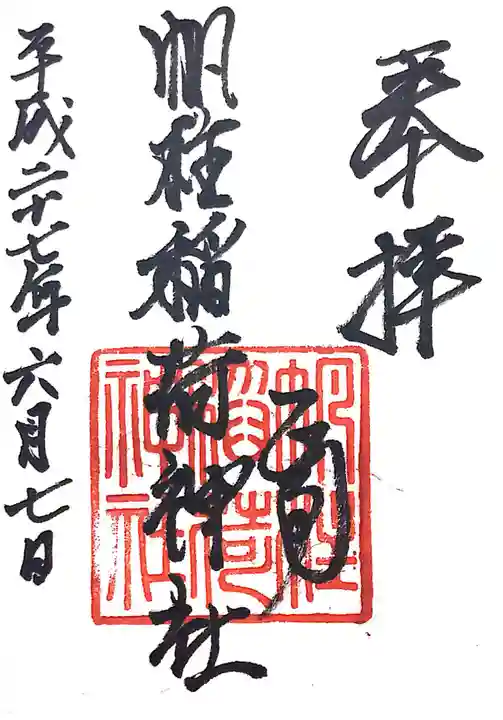 奉拝
帆柱稲荷神社
帆柱
稲荷
神社
平成二十七年六月七日